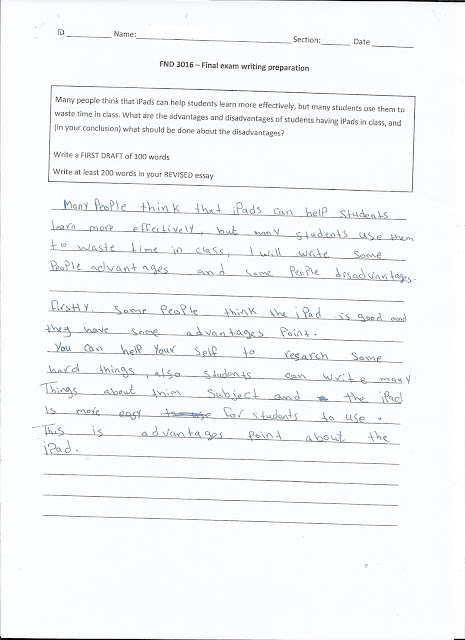 ID Name: Section: Date
FND 3016 – Final exam writing preparation
Many people think that iPads can help students learn more effectively, but many students use them to
waste time in class. What are the advantages and disadvantages of students having iPads in class, and
(in your conclusion) what should be done about the disadvantages?
Write a FIRST DRAFT of 100 words
Write at least 200 words in your REVISED essay
Many People think that iPads can help students
learn more effectively, but many students use them
to waste time in class, I will write some
People advantages and some People disadvantages.
firstly. Some People think the iPad is good and
they have some advantages Point.
You can help Your Self to resarch some
hard things, also students can write many
Things about thim subject and the iPad
Is more easy for students to use.
This is advantages point about the
iPad.